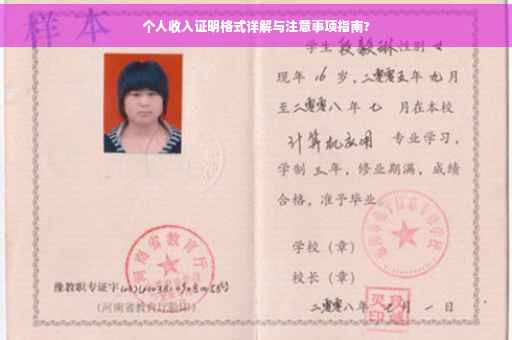 个人收入证明格式详解与注意事项指南?
样本
学生段毅琳性别 女
现年16岁,二零零五年九月
至二零零八年七 月在本校
计算机应用 专业学习,
学制三年,修业期满,成绩
合格,准予毕业
学校(章)
校长(章)
二零零八年七月一日
河南省教育厅
豫教职专证字
(河南省教育厅验印)